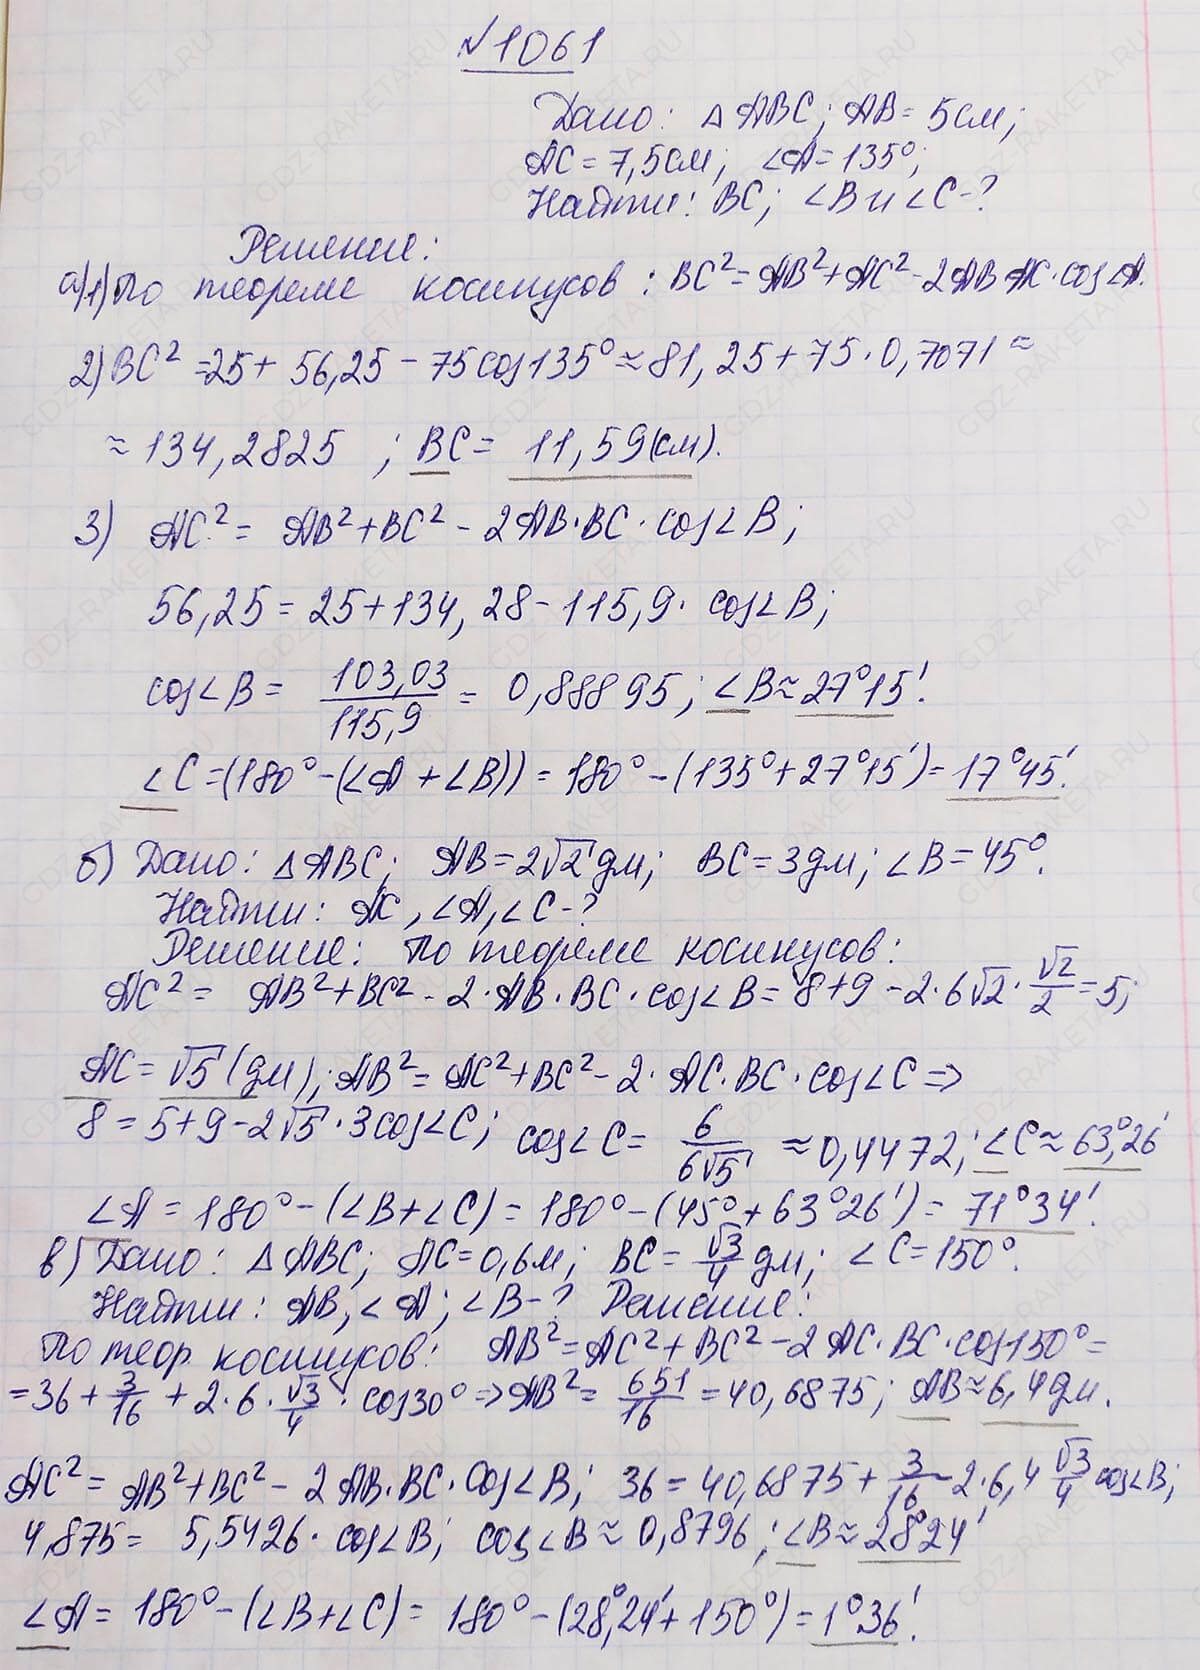 №1061
Дано: △ABC; AB = 5см;
AC = 7,5см; ∠A = 135°;
Найти: BC; ∠B и ∠C-?
Решение:
а)1) По теореме косинусов: BC² = AB² + AC² - 2AB·AC·cos∠A.
2) BC² = 25 + 56,25 - 75cos135° ≈ 81,25 + 75·0,7071 ≈
≈ 134,2825 ; BC = 11,59(см).
3) AC² = AB² + BC² - 2AB·BC·cos∠B;
56,25 = 25 + 134,28 - 115,9·cos∠B;
cos∠B = 103,03/115,9 = 0,88895; ∠B ≈ 27°15'.
∠C = (180° - (∠A + ∠B)) = 180° - (135° + 27°15') = 17°45'.
б) Дано: △ABC; AB = 2√2 дм; BC = 3дм; ∠B = 45°.
Найти: AC, ∠A, ∠C-?
Решение: По теореме косинусов:
AC² = AB² + BC² - 2·AB·BC·cos∠B = 8 + 9 - 2·6√2·√2/2 = 5;
AC = √5 (дм); AB² = AC² + BC² - 2·AC·BC·cos∠C ⇒
8 = 5 + 9 - 2√5·3cos∠C; cos∠C = 6/6√5 ≈ 0,4472; ∠C ≈ 63°26'
∠A = 180° - (∠B + ∠C) = 180° - (45° + 63°26') = 71°34'.
в) Дано: △ABC; AC = 0,6м; BC = √3/4 дм; ∠C = 150°.
Найти: AB, ∠A; ∠B-? Решение:
По теор. косинусов: AB² = AC² + BC² - 2AC·BC·cos150° =
= 36 + 3/16 + 2·6·√3/4·cos30° ⇒ AB² = 651/16 = 40,6875; AB ≈ 6,4дм.
AC² = AB² + BC² - 2AB·BC·cos∠B; 36 = 40,6875 + 3/16 - 2·6,4 √3/4 cos∠B;
4,875 = 5,5426·cos∠B; cos∠B ≈ 0,8796; ∠B ≈ 28°24'
∠A = 180° - (∠B + ∠C) = 180° - (28°24' + 150°) = 1°36'.